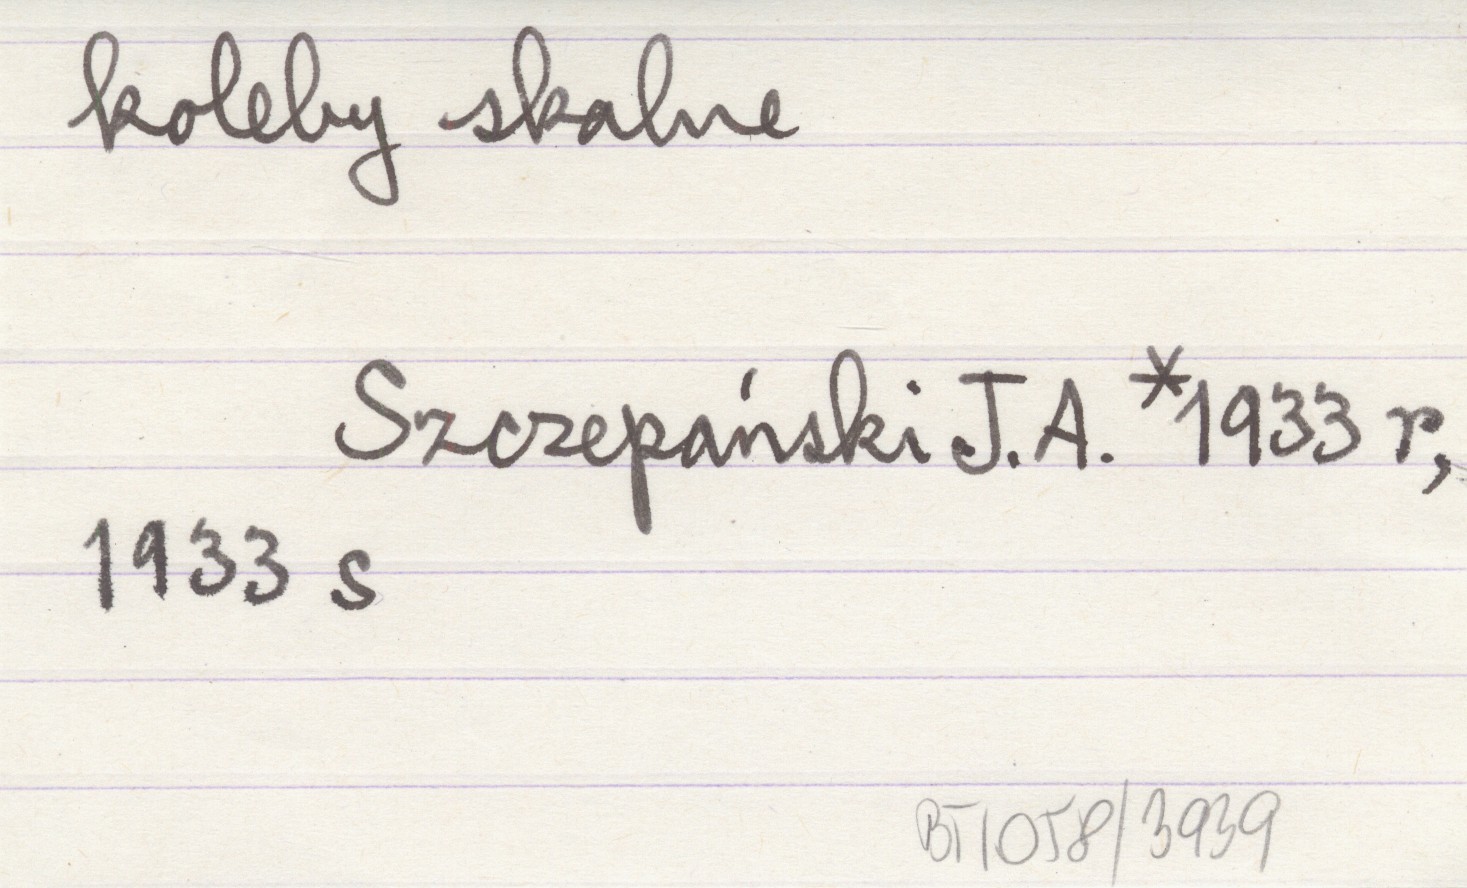 koleby skalne
Szczepański J.A. *1933 r,
1933 s
BT1058/3939